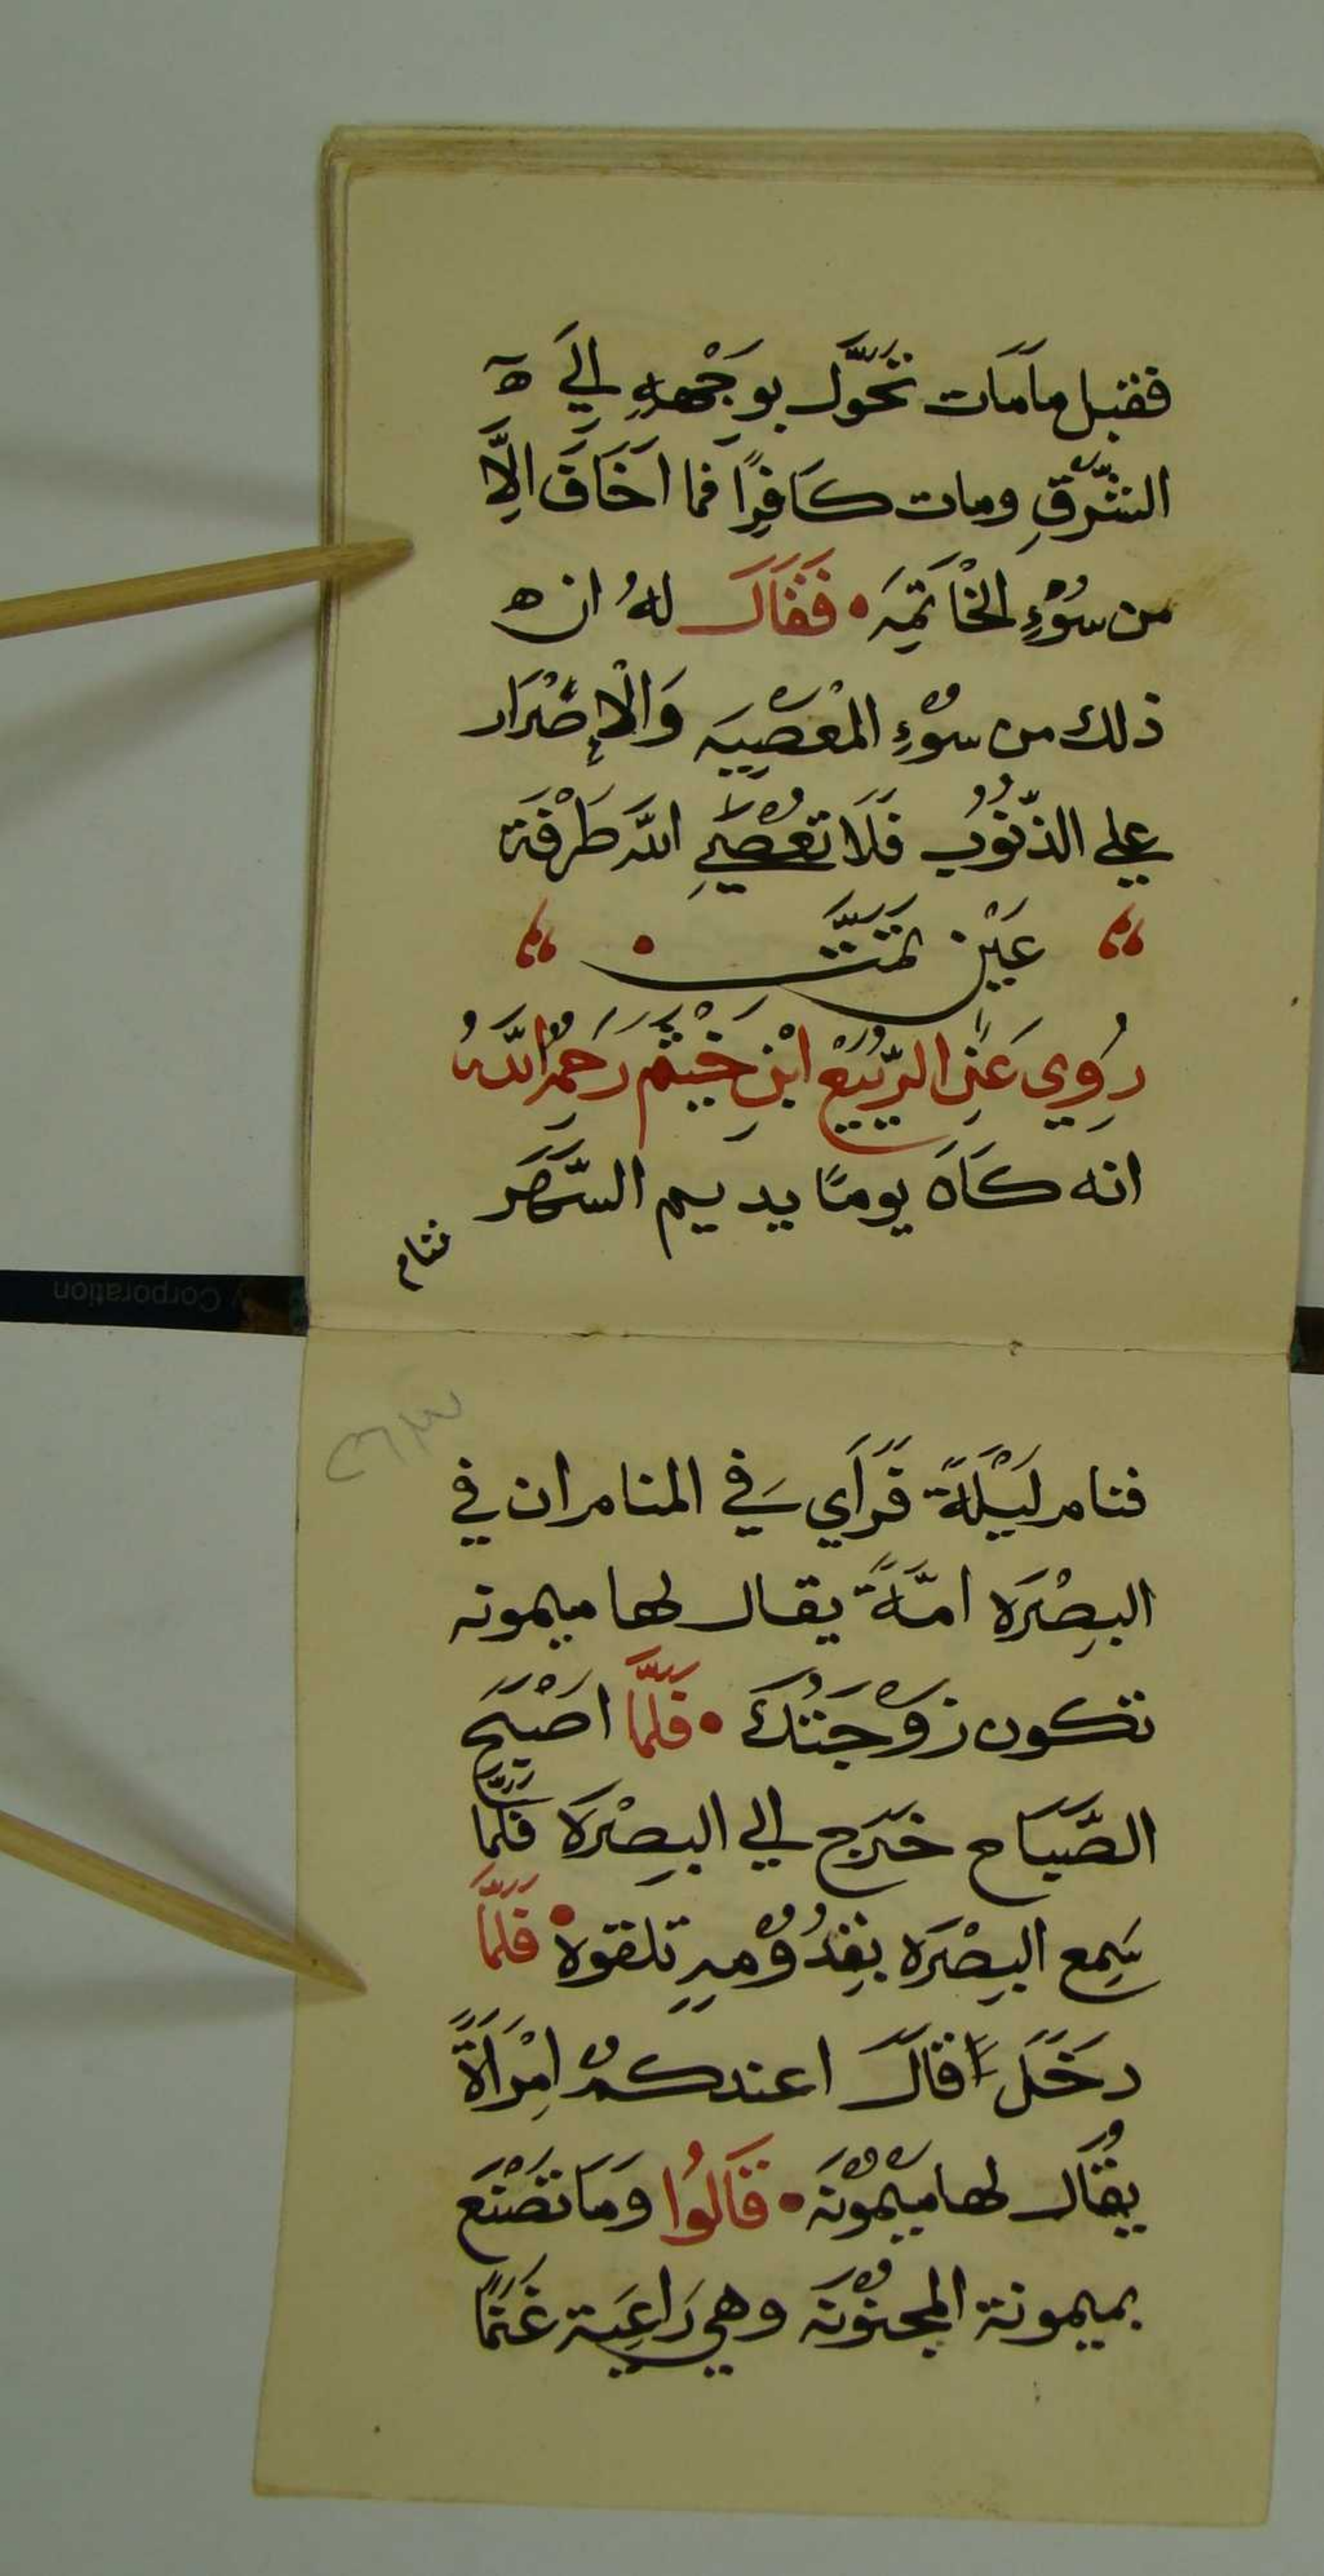 فقبل مامَات تَحَوَّل بوَجْههِ اِلَي ه
الشّرقِ ومات كَافِرًا فما اخَافَ اِلَّا
من سُوْءِ الخَاْتمِہَ • فَقَالَ لهُ ان ه
ذلك من سوْءِ المْعْصِيہَ وَالْاِصْرَار
علي الذّنوُب فَلَا تعْصِي اللّه طَرْفَة
عَيْن تمَّتَّ •
رُوِي عَنِ الرَّبيْع ابْنِ خَيْثم رَحمہُ اللّهُ
انه كَانَ يومًا يديم السَّهَر
فنام
فنام لَيْلَةً فَرَأَي فِي المنام ان في
البِصْرَه امَةً يقال لها ميمونه
تكون زوْجَتُكَ • فَلَمَّا اصْبَح
الصَّبَاح خَرَج الي البِصْرَة فَلَمَّا
سَمِع البِصْرَه بِقدُوْمہِ تلقوه • فَلَمَّا
دخَل قالَ اعندكمْ امِرْاَةً
يُقَال لها مَيْمُوْنہَ • قَالُوا وَمَا تصْنَع
بميمونة المجنوْنَه وهي رَاعِيَة غَنمًا